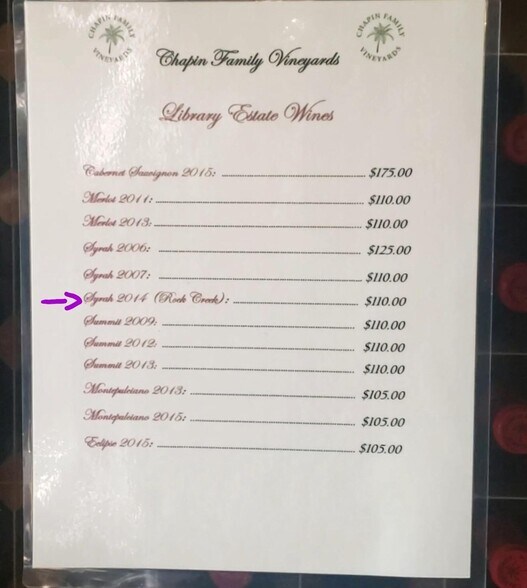 CHAPIN FAMILY VINEYARDS
CHAPIN FAMILY VINEYARDS
Chapin Family Vineyards
Library Estate Wines
Cabernet Sauvignon 2015: $175.00
Merlot 2011: $110.00
Merlot 2013: $110.00
Syrah 2006: $125.00
Syrah 2007: $110.00
Syrah 2014 (Rock Creek): $110.00
Summit 2009: $110.00
Summit 2012: $110.00
Summit 2013: $110.00
Montepulciano 2013: $105.00
Montepulciano 2015: $105.00
Eclipse 2015: $105.00